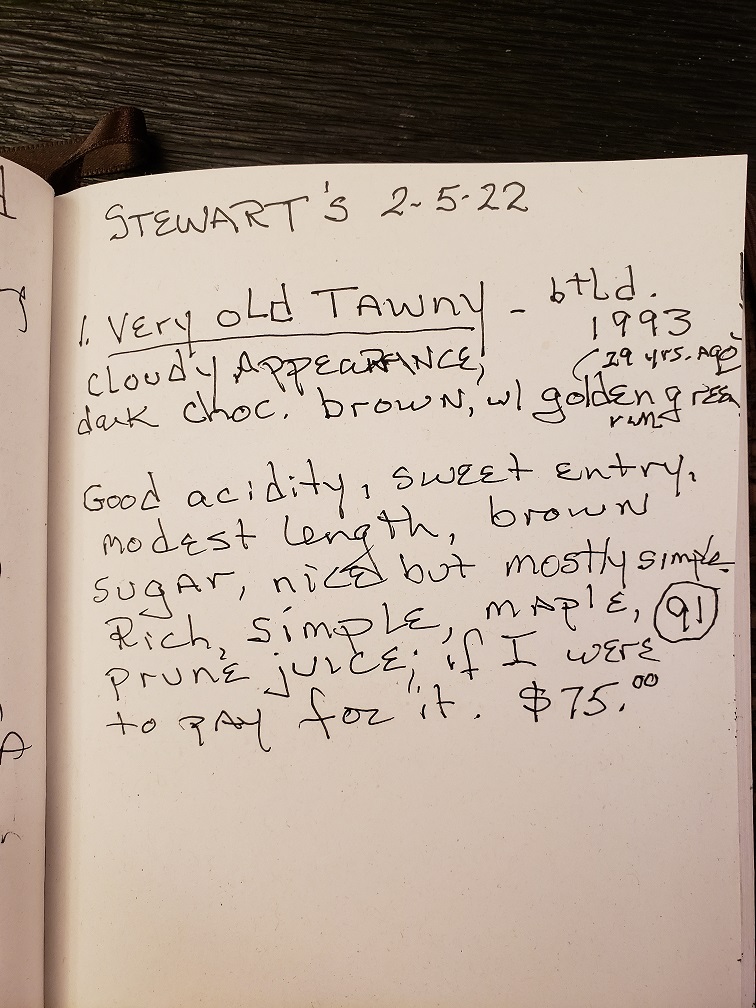 STEWART'S 2-5-22
1. Very old TAWNY - btld.
1993
(29 yrs. AgO)
cloudy APPEARANCE,
dark choc. brown, w/ golden green
rim
Good acidity, sweet entry,
modest length, brown
sugar, nice but mostly simple.
Rich, simple, maple, 91
prune juice; if I were
to pay for it. $75.00